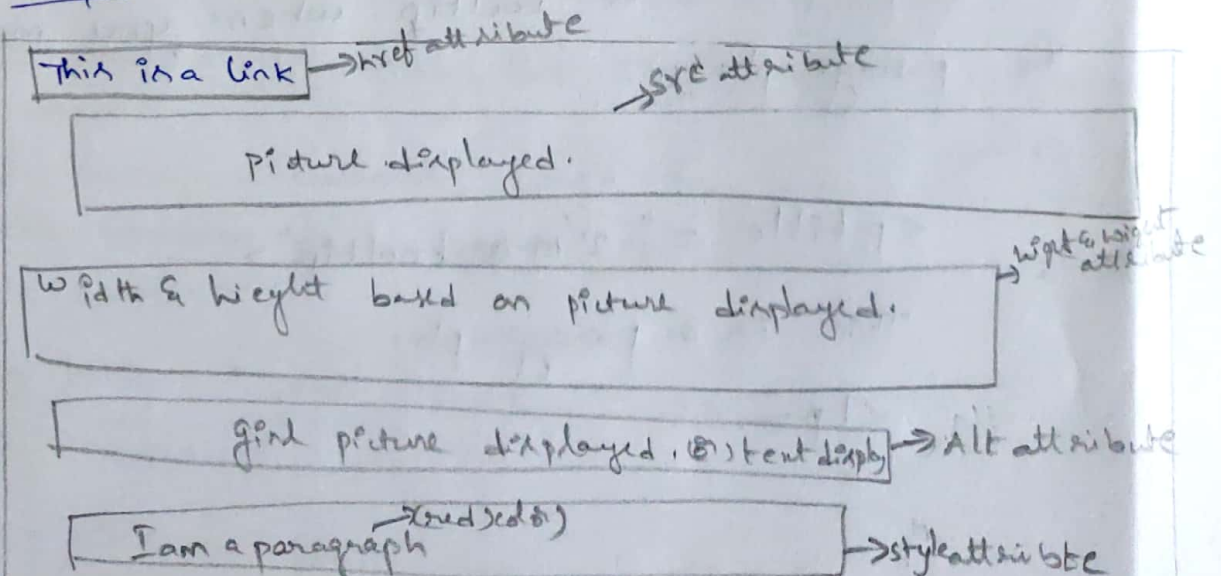 This is a link → href attribute
→ src attribute
picture displayed.
→ hight & wight
attribute
width & hieght based on picture displayed.
girl picture displayed. (or) text display → Alt attribute
→ (red) color)
I am a paragraph → style attribte